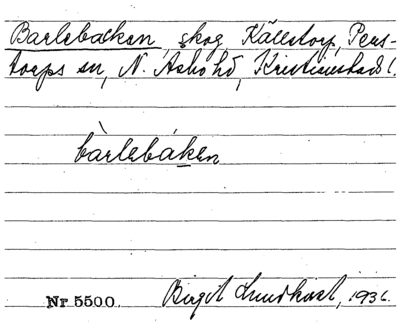 Barlebacken, skog, Källstorp, Pers-
torps sn, N. Åsbo hd, Kristianstads l.
bàrlebáken
Nr 5500. Birgit Lundkvist, 1936.